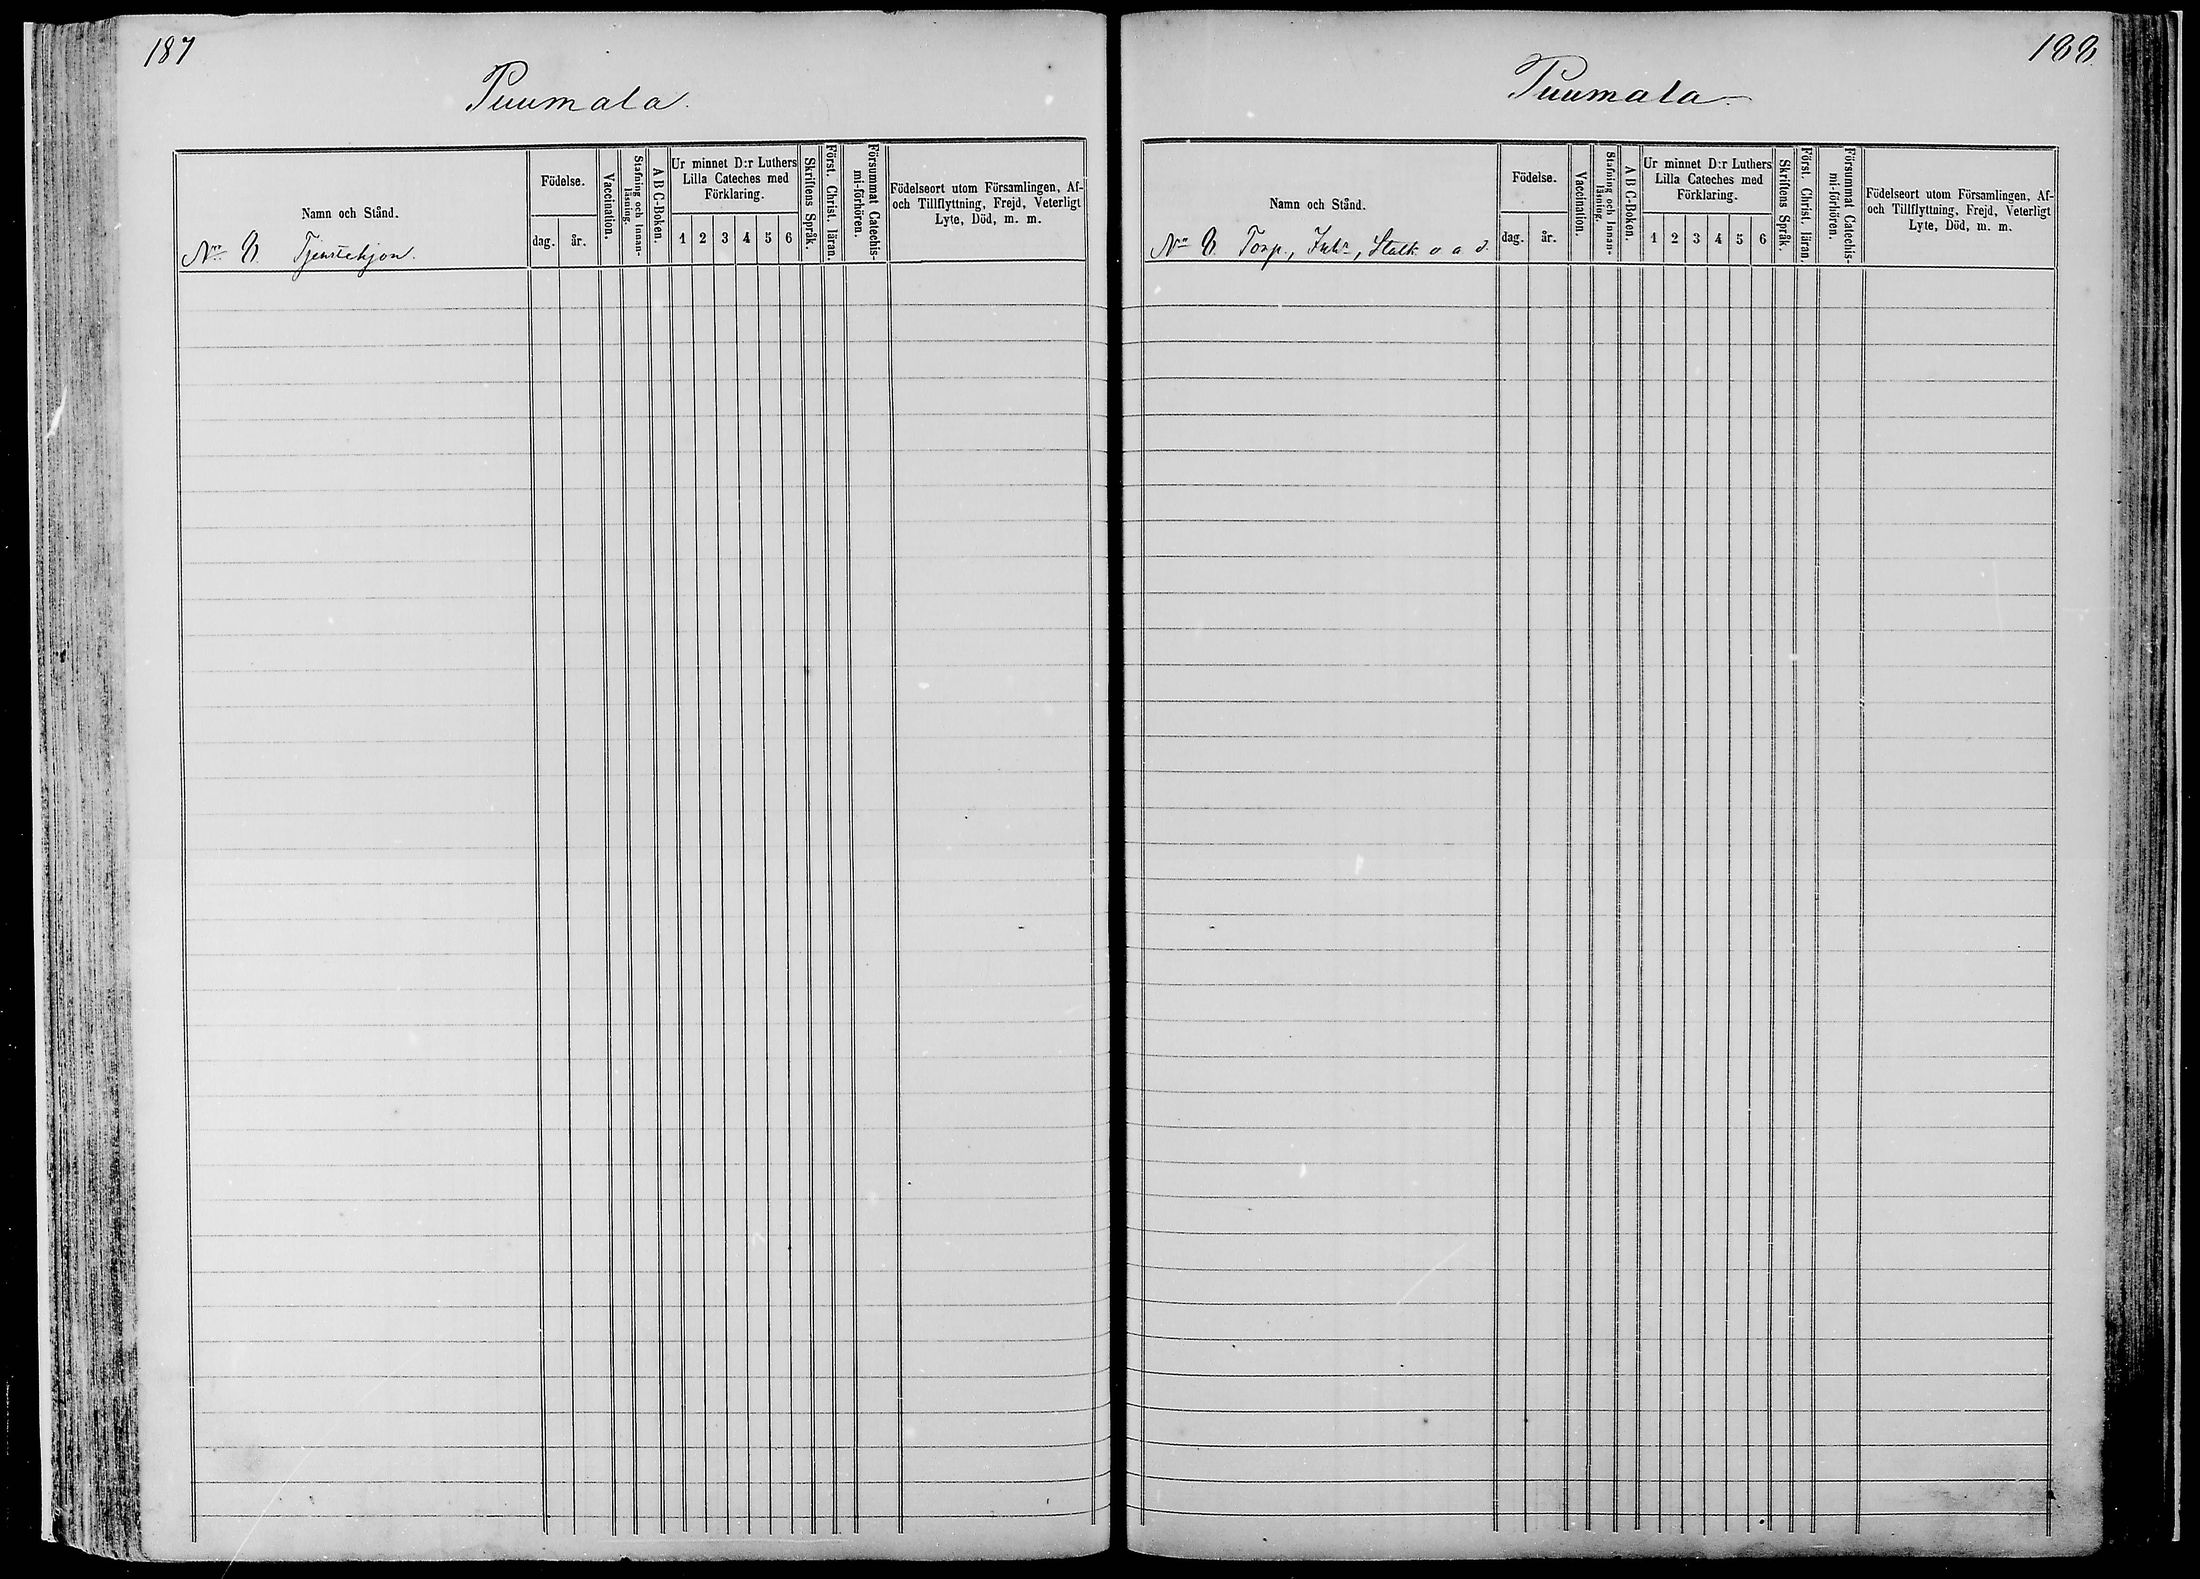 187
Puumala.
Namn och Stånd.
N:ro 8. Tjenstehjon.
Födelse.
dag.
år.
Vaccination.
Stafning och Innan-
läsning.
A B C-Boken.
Ur minnet D:r Luthers
Lilla Cateches med
Förklaring.
1 2 3 4 5 6
Skriftens Språk.
Först. Christ. läran.
Försummat Catechis-
mi-förhören.
Födelseort utom Församlingen, Af-
och Tillflyttning, Frejd, Veterligt
Lyte, Död, m. m.
188.
Puumala
Namn och Stånd.
N:ro 8. Torp., Inh:r, Statk. o. a. d.
Födelse.
dag.
år.
Vaccination.
Stafning och Innan-
läsning.
A B C-Boken.
Ur minnet D:r Luthers
Lilla Cateches med
Förklaring.
1 2 3 4 5 6
Skriftens Språk.
Först. Christ. läran.
Försummat Catechis-
mi-förhören.
Födelseort utom Församlingen, Af-
och Tillflyttning, Frejd, Veterligt
Lyte, Död, m. m.